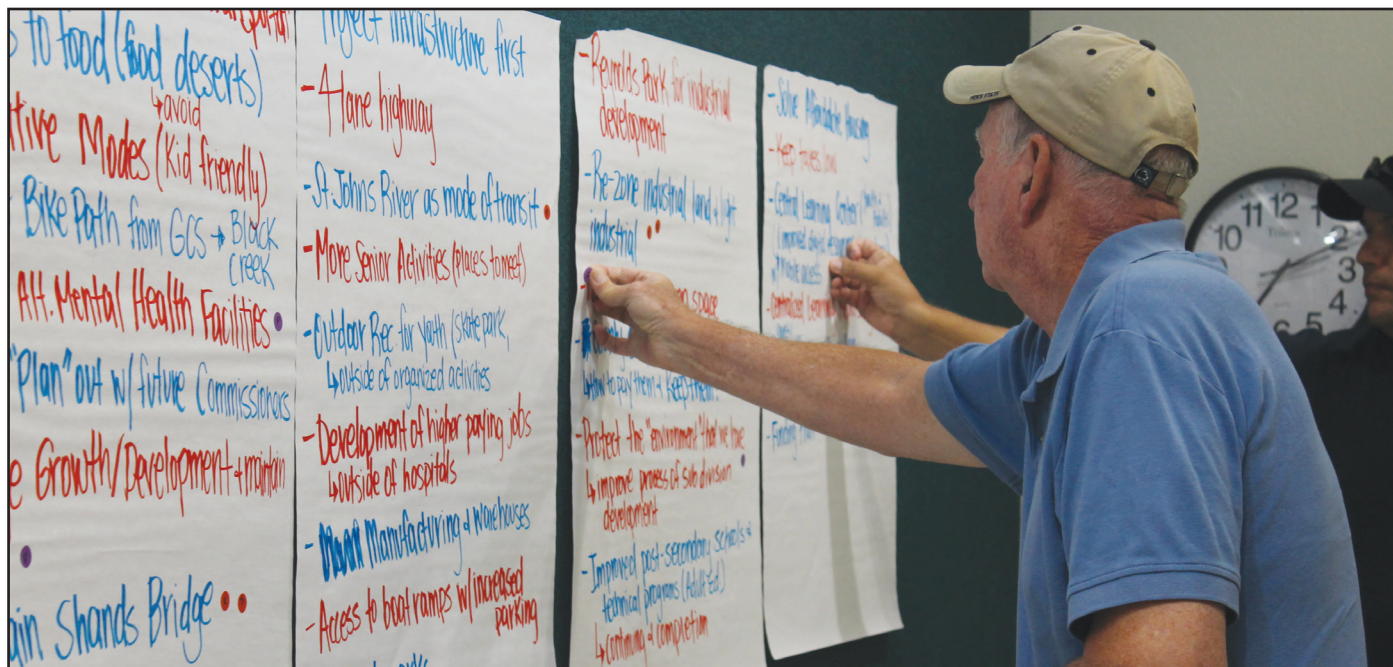 s to food (food deserts)
↳ avoid
ative Modes (Kid friendly)
Bike Path from GCS → Black
Creek
Alt. Mental Health Facilities
"Plan" out w/ future Commissioners
e Growth/Development & maintain
ain Shands Bridge
Project infrastructure first
- 4 lane highway
- St. Johns River as mode of transit
- More Senior Activities (places to meet)
- Outdoor Rec for youth (skate park,
↳ outside of organized activities
- Development of higher paying jobs
↳ outside of hospitals
- Manufacturing & warehouses
- Access to boat ramps w/ increased
parking
- Reynolds Park for industrial
development
- Re-zone industrial land & light
industrial
space
↳ How to pay them & keep them.
- Protect the "environment" that we love
↳ improve process of sub division
development
- Improved post-secondary schools &
technical programs (Adult Ed.)
↳ contining & completion
- Solve Affordable Housing
- Keep taxes low
- Central Learning Center
access
- Centralized
- Funding
11 12 1
10 2
3
4
6 5